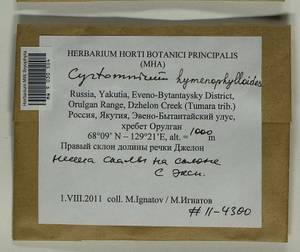 HERBARIUM HORTI BOTANICI PRINCIPALIS
(MHA)
Cyrtomnium hymenophylloides
Russia, Yakutia, Eveno-Bytantaysky District,
Orulgan Range, Dzhelon Creek (Tumara trib.)
Россия, Якутия, Эвено-Бытантайский улус,
хребет Орулган
68°09' N – 129°21'E, alt~ 1000 m
Правый склон долины речки Джелон
скалы на склоне
С эксп.
1.VIII.2011 coll. M.Ignatov / М.Игнатов
# 11-4300